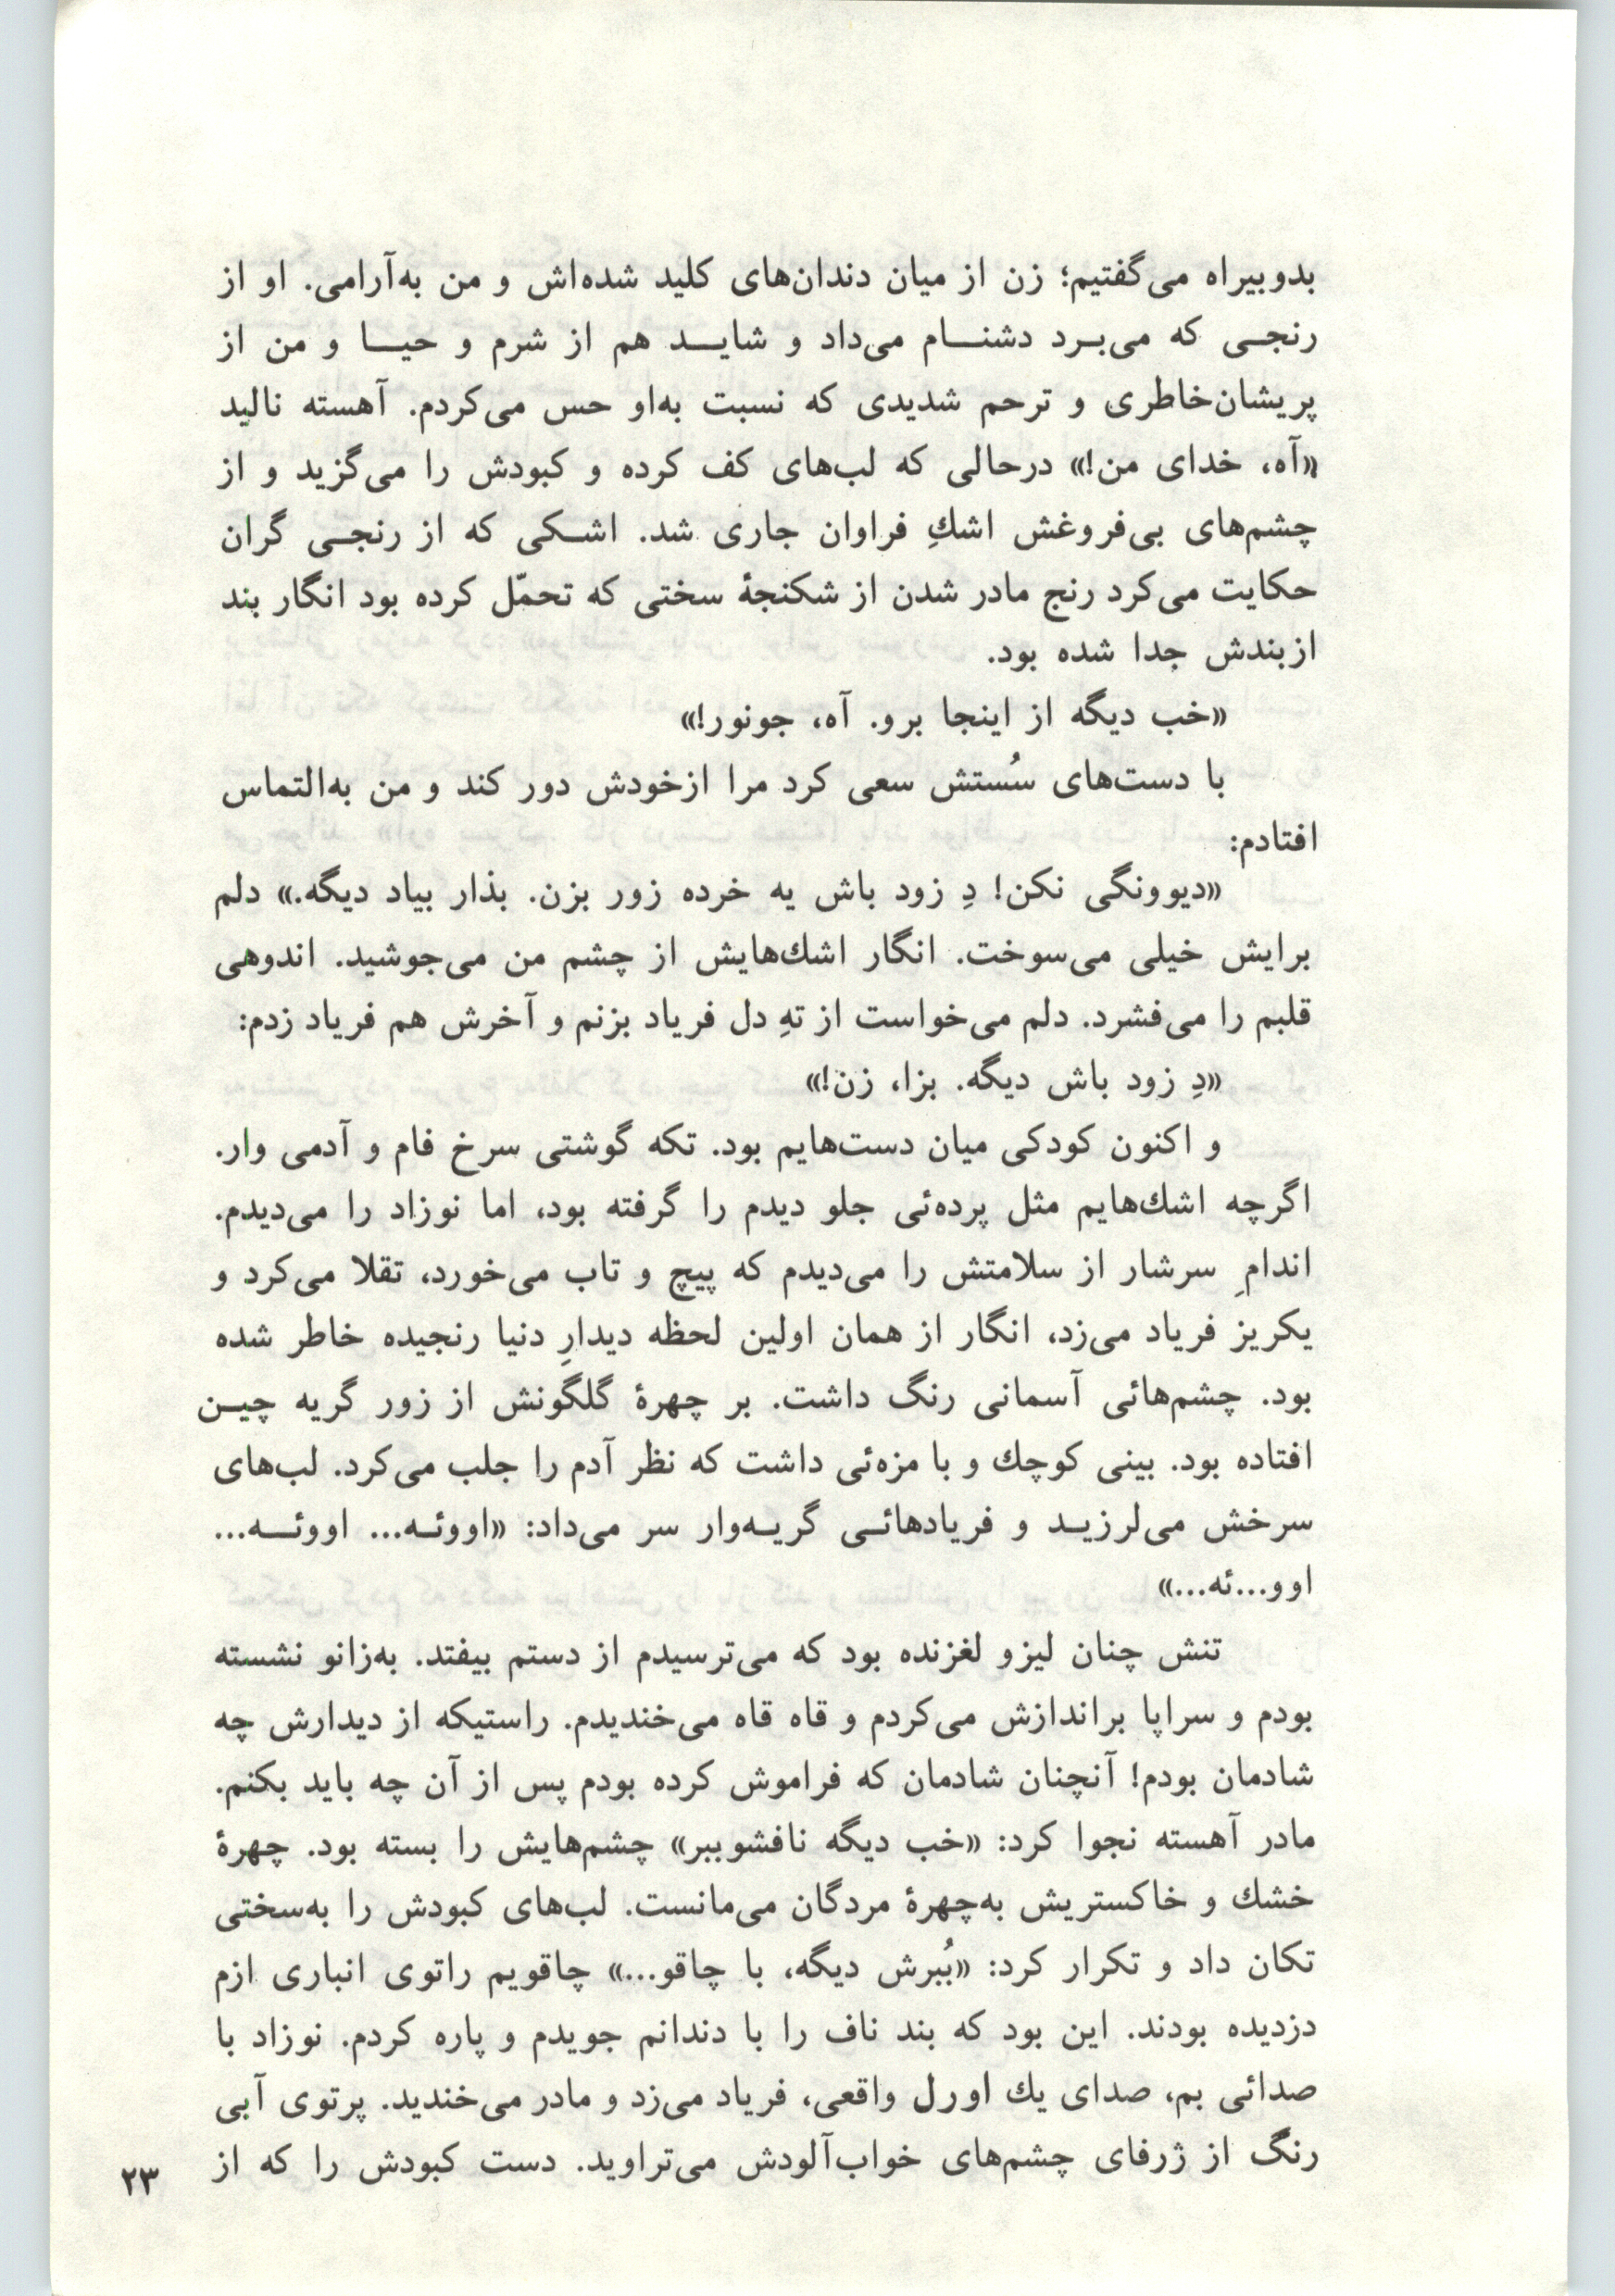 بدوبیراه می‌گفتیم؛ زن از میان دندان‌های کلید شده‌اش و من به‌آرامی. او از
رنجی که می‌برد دشنام می‌داد و شاید هم از شرم و حیا و من از
پریشان‌خاطری و ترحم شدیدی که نسبت به‌او حس می‌کردم. آهسته نالید
«آه، خدای من!» درحالی که لب‌های کف کرده و کبودش را می‌گزید و از
چشم‌های بی‌فروغش اشكِ فراوان جاری شد. اشکی که از رنجی گران
حکایت می‌کرد رنج مادر شدن از شکنجهٔ سختی که تحمّل کرده بود انگار بند
ازبندش جدا شده بود.
«خب دیگه از اینجا برو. آه، جونور!»
با دست‌های سُستش سعی کرد مرا ازخودش دور کند و من به‌التماس
افتادم:
«دیوونگی نکن! دِ زود باش یه خرده زور بزن. بذار بیاد دیگه.» دلم
برایش خیلی می‌سوخت. انگار اشك‌هایش از چشم من می‌جوشید. اندوهی
قلبم را می‌فشرد. دلم می‌خواست از تهِ دل فریاد بزنم و آخرش هم فریاد زدم:
«دِ زود باش دیگه. بزا، زن!»
و اکنون کودکی میان دست‌هایم بود. تکه گوشتی سرخ فام و آدمی وار.
اگرچه اشك‌هایم مثل پرده‌ئی جلو دیدم را گرفته بود، اما نوزاد را می‌دیدم.
اندامِ سرشار از سلامتش را می‌دیدم که پیچ و تاب می‌خورد، تقلا می‌کرد و
یکریز فریاد می‌زد، انگار از همان اولین لحظه دیدارِ دنیا رنجیده خاطر شده
بود. چشم‌هائی آسمانی رنگ داشت. بر چهرهٔ گلگونش از زور گریه چین
افتاده بود. بینی کوچك و با مزه‌ئی داشت که نظر آدم را جلب می‌کرد. لب‌های
سرخش می‌لرزید و فریادهائی گریه‌وار سر می‌داد: «اووئه... اووئه...
اوو...ئه...»
تنش چنان لیزو لغزنده بود که می‌ترسیدم از دستم بیفتد. به‌زانو نشسته
بودم و سراپا براندازش می‌کردم و قاه قاه می‌خندیدم. راستیکه از دیدارش چه
شادمان بودم! آنچنان شادمان که فراموش کرده بودم پس از آن چه باید بکنم.
مادر آهسته نجوا کرد: «خب دیگه نافشوببر» چشم‌هایش را بسته بود. چهرهٔ
خشك و خاکستریش به‌چهرهٔ مردگان می‌مانست. لب‌های کبودش را به‌سختی
تکان داد و تکرار کرد: «بُبرش دیگه، با چاقو...» چاقویم راتوی انباری ازم
دزدیده بودند. این بود که بند ناف را با دندانم جویدم و پاره کردم. نوزاد با
صدائی بم، صدای یك اورل واقعی، فریاد می‌زد و مادر می‌خندید. پرتوی آبی
رنگ از ژرفای چشم‌های خواب‌آلودش می‌تراوید. دست کبودش را که از
۲۳